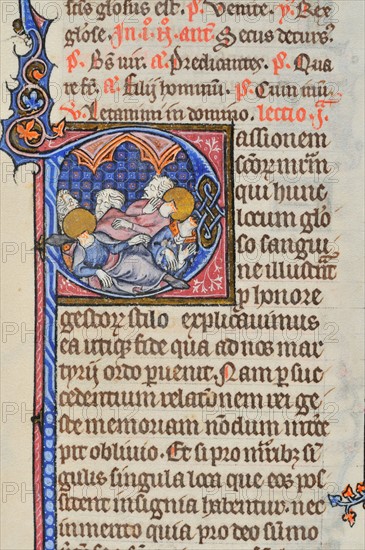 stis glosus est. ps. Venite. ymp. Rex
glose. In i. n. ant. Secus decurs.
ps. Bts vir. a. Predicantes. ps. Qua
re fr. a. Filij hominum. ps. Cum inu.
v. Letamini in domino. lectio j.
Passionem
scorum mrum
qui hunc
locum glo
so sangui
ne illustrant
p honore
gestorum stilo explicavimus
ea utiqz fide qua ad nos mar
tyrii ordo pervenit. Nam per suc
cedentium relatonem rei ge
ste memoriam nondum inter
pit oblivio. Et si pro mribz sin
gulis singula loca que eos pos
sident insignia habentur. nec
inmerito quia pro deo summo